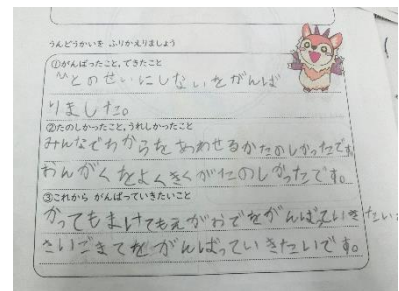 うんどうかいを ふりかえりましょう
①がんばったこと、できたこと
ひとのせいにしないをがんば
りました。
②たのしかったこと、うれしかったこと
みんなでわからをあわせるがたのしかったです
おんがくをよくきくがたのしかったです。
③これから がんばっていきたいこと
かってもまけてもえがおでをがんばていきたい
さいごまでをがんばっていきたいです。